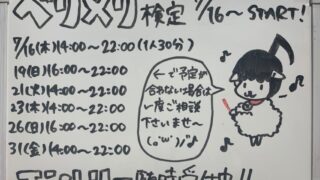 ベリメリ検定 7/16～START!
7/16(木)14:00～22:00(1人30分)
19(日)16:00～22:00
21(火)14:00～22:00
23(木)14:00～22:00
26(日)16:00～22:00
31(金)14:00～22:00
←ご予定が
合わない場合は
一度ご相談
下さいませ～
(｡･ω･)ﾉ♪
随時受付中!!